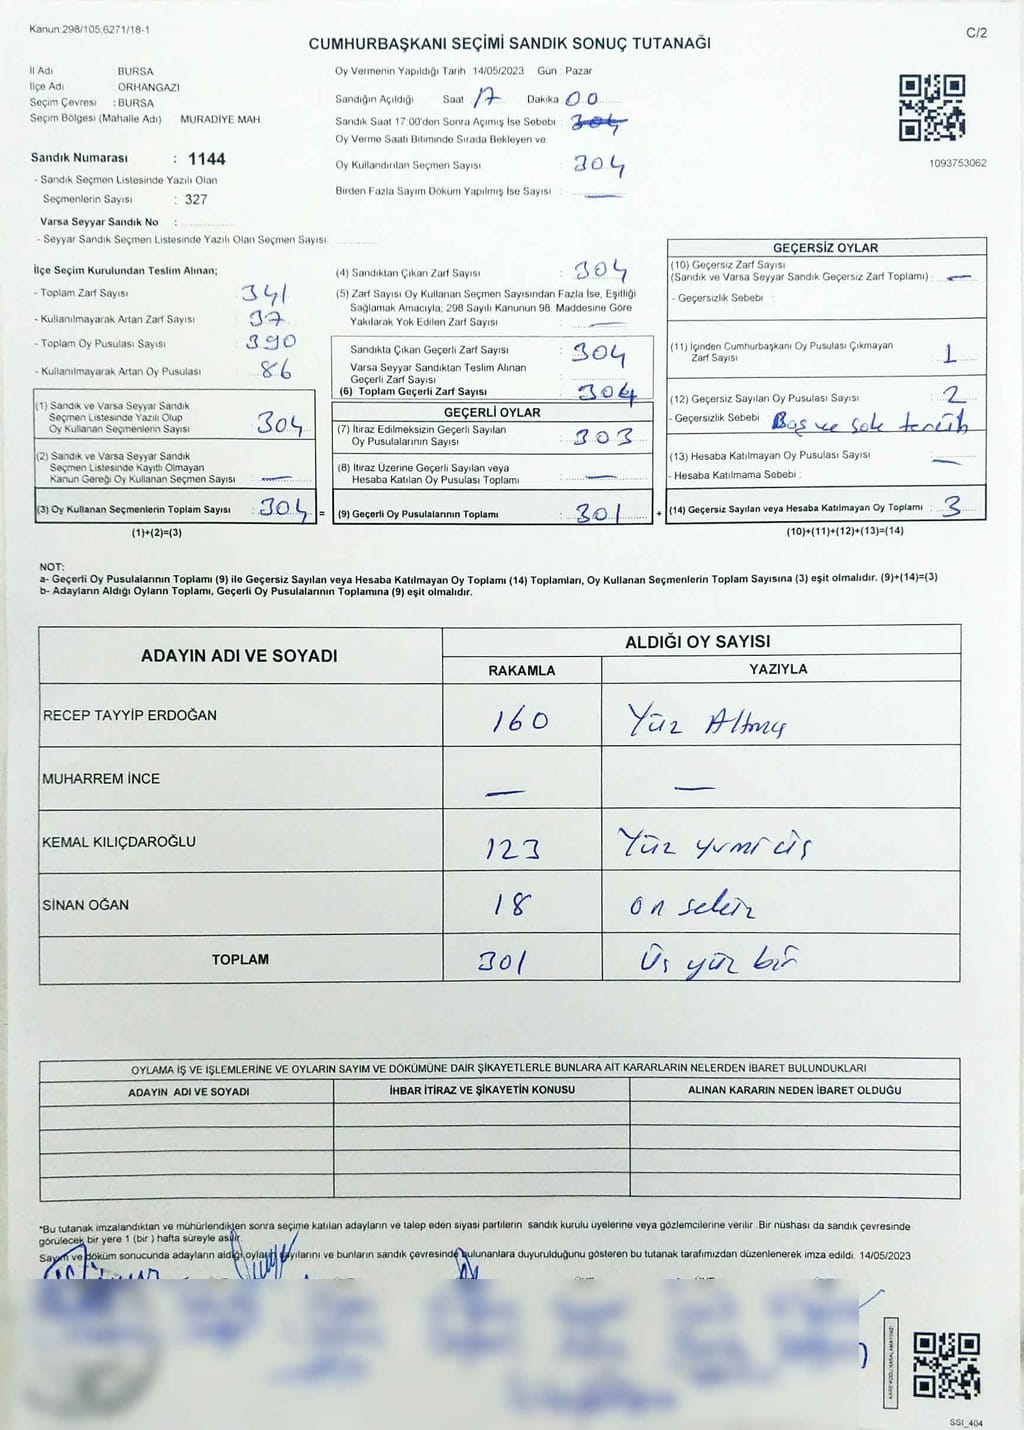 Kanun;298/105,6271/18-1
C/2
CUMHURBAŞKANI SEÇİMİ SANDIK SONUÇ TUTANAĞI
İl Adı : BURSA
İlçe Adı : ORHANGAZİ
Seçim Çevresi : BURSA
Seçim Bölgesi (Mahalle Adı) MURADİYE MAH.
Sandık Numarası : 1144
- Sandık Seçmen Listesinde Yazılı Olan
Seçmenlerin Sayısı : 327
Varsa Seyyar Sandık No :
- Seyyar Sandık Seçmen Listesinde Yazılı Olan Seçmen Sayısı:
Oy Vermenin Yapıldığı Tarih : 14/05/2023 Gün : Pazar
Sandığın Açıldığı Saat 17 Dakika 00
Sandık Saat 17.00'den Sonra Açımış İse Sebebi : 304
Oy Verme Saati Bitiminde Sırada Bekleyen ve
Oy Kullandırılan Seçmen Sayısı : 304
Birden Fazla Sayım Döküm Yapılmış İse Sayısı : —
1093753062
İlçe Seçim Kurulundan Teslim Alınan;
- Toplam Zarf Sayısı : 341
- Kullanılmayarak Artan Zarf Sayısı : 37
- Toplam Oy Pusulası Sayısı : 390
- Kullanılmayarak Artan Oy Pusulası : 86
(1) Sandık ve Varsa Seyyar Sandık
Seçmen Listesinde Yazılı Olup
Oy Kullanan Seçmenlerin Sayısı : 304
(2) Sandık ve Varsa Seyyar Sandık
Seçmen Listesinde Kayıtlı Olmayan
Kanun Gereği Oy Kullanan Seçmen Sayısı : —
(3) Oy Kullanan Seçmenlerin Toplam Sayısı : 304 =
(1)+(2)=(3)
(4) Sandıktan Çıkan Zarf Sayısı : 304
(5) Zarf Sayısı Oy Kullanan Seçmen Sayısından Fazla İse, Eşitliği
Sağlamak Amacıyla; 298 Sayılı Kanunun 98. Maddesine Göre
Yakılarak Yok Edilen Zarf Sayısı : —
Sandıkta Çıkan Geçerli Zarf Sayısı : 304
Varsa Seyyar Sandıktan Teslim Alınan
Geçerli Zarf Sayısı :
(6) Toplam Geçerli Zarf Sayısı : 304
GEÇERLİ OYLAR
(7) İtiraz Edilmeksizin Geçerli Sayılan
Oy Pusulalarının Sayısı : 303
(8) İtiraz Üzerine Geçerli Sayılan veya
Hesaba Katılan Oy Pusulası Toplamı : —
(9) Geçerli Oy Pusulalarının Toplamı : 301 +
GEÇERSİZ OYLAR
(10) Geçersiz Zarf Sayısı
(Sandık ve Varsa Seyyar Sandık Geçersiz Zarf Toplamı) : —
- Geçersizlik Sebebi :
(11) İçinden Cumhurbaşkanı Oy Pusulası Çıkmayan
Zarf Sayısı : 1
(12) Geçersiz Sayılan Oy Pusulası Sayısı : 2
- Geçersizlik Sebebi : Boş ve çok tercih
(13) Hesaba Katılmayan Oy Pusulası Sayısı : —
- Hesaba Katılmama Sebebi :
(14) Geçersiz Sayılan veya Hesaba Katılmayan Oy Toplamı : 3
(10)+(11)+(12)+(13)=(14)
NOT:
a- Geçerli Oy Pusulalarının Toplamı (9) ile Geçersiz Sayılan veya Hesaba Katılmayan Oy Toplamı (14) Toplamları, Oy Kullanan Seçmenlerin Toplam Sayısına (3) eşit olmalıdır. (9)+(14)=(3)
b- Adayların Aldığı Oyların Toplamı, Geçerli Oy Pusulalarının Toplamına (9) eşit olmalıdır.
ADAYIN ADI VE SOYADI
ALDIĞI OY SAYISI
RAKAMLA YAZIYLA
RECEP TAYYİP ERDOĞAN 160 Yüz Altmış
MUHARREM İNCE — —
KEMAL KILIÇDAROĞLU 123 Yüz yirmi üç
SİNAN OĞAN 18 on sekiz
TOPLAM 301 Üç yüz bir
OYLAMA İŞ VE İŞLEMLERİNE VE OYLARIN SAYIM VE DÖKÜMÜNE DAİR ŞİKAYETLERLE BUNLARA AİT KARARLARIN NELERDEN İBARET BULUNDUKLARI
ADAYIN ADI VE SOYADI İHBAR İTİRAZ VE ŞİKAYETİN KONUSU ALINAN KARARIN NEDEN İBARET OLDUĞU
*Bu tutanak imzalandıktan ve mühürlendikten sonra seçime katılan adayların ve talep eden siyasi partilerin sandık kurulu üyelerine veya gözlemcilerine verilir .Bir nüshası da sandık çevresinde
görülecek bir yere 1 (bir ) hafta süreyle asılır.
Sayım ve döküm sonucunda adayların aldığı oyların sayılarını ve bunların sandık çevresinde bulunanlara duyurulduğunu gösteren bu tutanak tarafımızdan düzenlenerek imza edildi. 14/05/2023
SSI_404